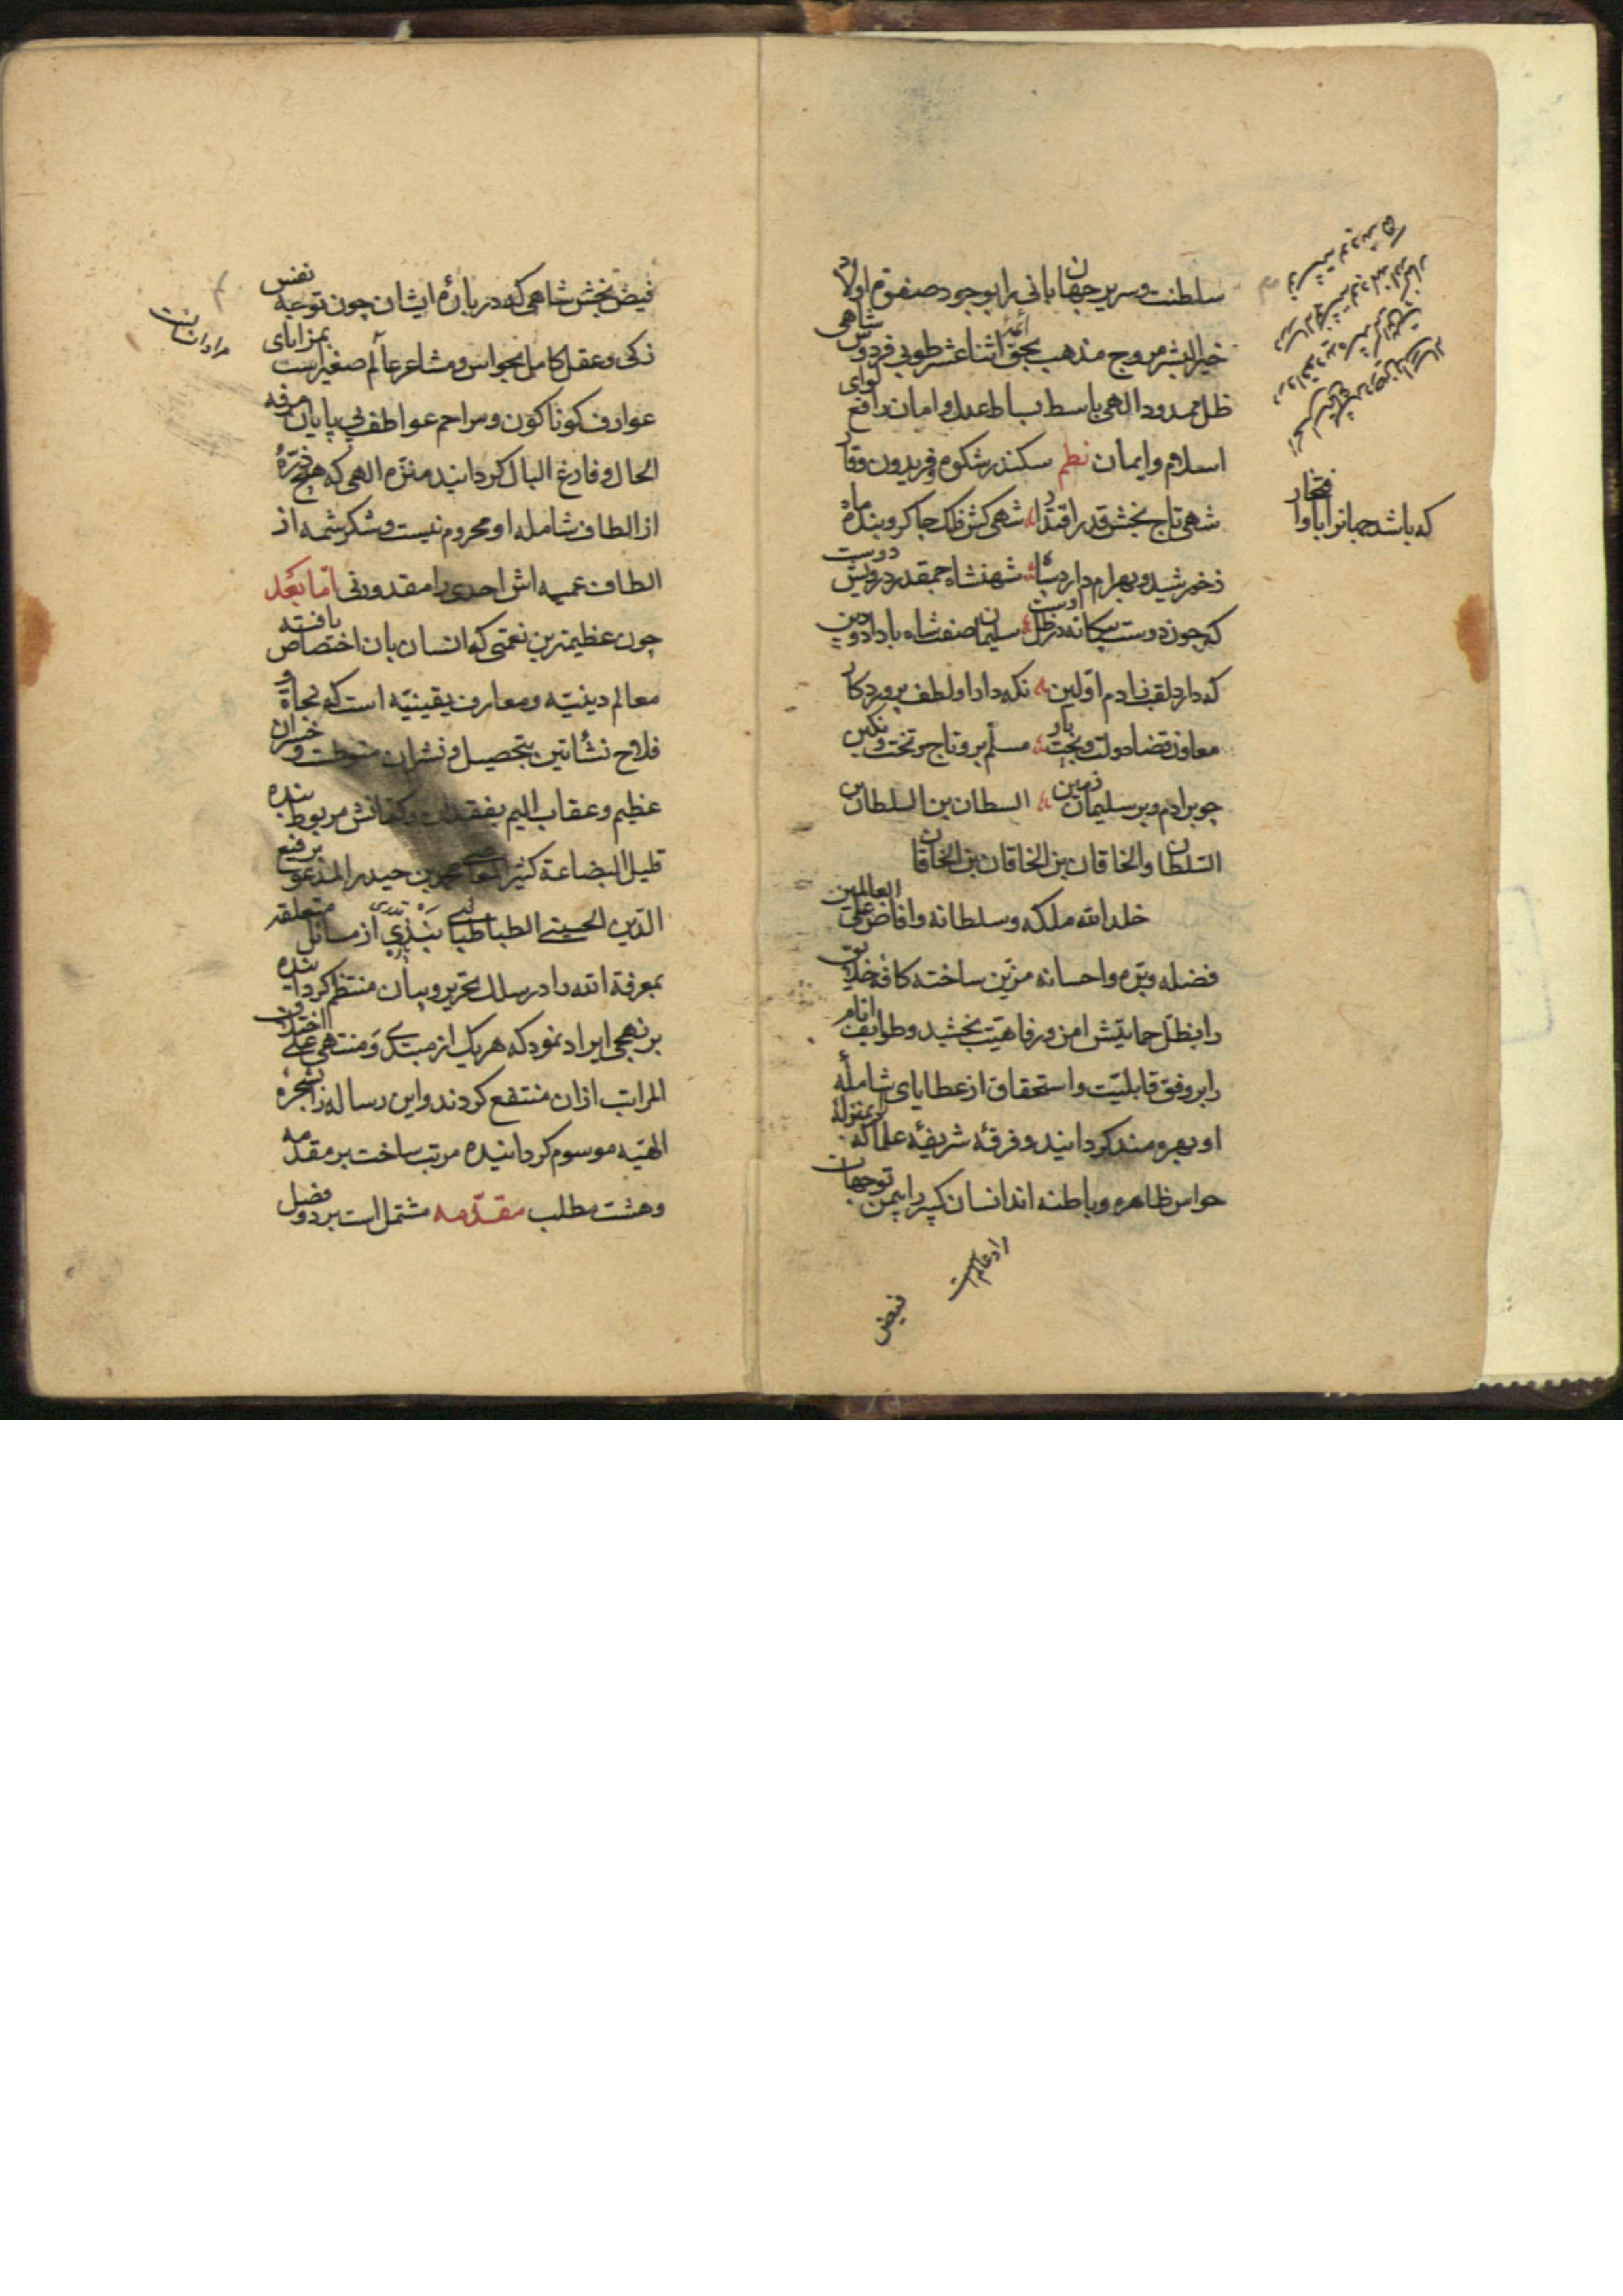 سلطنت و سریر جهانبانی را بوجود صفوة اولاد
خیر البشر مروج مذهب بحق ائمهٔ اثنا عشر طوبی فردوس شاهی
ظل ممدود الهی باسط بساط عدل و امان رافع لوای
اسلام و ایمان نظم سکندر شکوه و فریدون وقار
که باشد جهانرا باو افتخار
شهی تاج بخش قدر اقتدار شهی کش فلک چاکر و بنده ماه
ز خورشید و بهرام دارد سپاه شهنشاه جمقدر درویش دوست
که چون دوست بیکانه در ظل اوست سلیمان صفت شاه با داد و دین
که دارد لقب ادم اولین نکه دار او لطف پروردکار
معاون قضا دولت و بخت یار مسلم برو تاج و تخت و نکین
چو بر ادم و بر سلیمان زمین السطان بن السلطان بن
السلطان والخاقان بن الخاقان بن الخاقان
خلد الله ملکه و سلطانه و افاض علی العالمین
فضله و بره و احسانه مزین ساخته کافه خلایق
را بظل حمایتش امن و رفاهیت بخشید و طوایف انام
را بر وفق قابلیت و استحقاق از عطایای شامله
او بهره مند کردانید و فرقه شریفه علما که بمنزله
حواس ظاهره و باطنه اند انسان کبیر را بیمن توجهات
فیض
فیض بخش شاهی که در باره ایشان چون توجه نفس
زکی و عقل کامل بحواس و مشاعر عالم صغیر است بمزایای
عوارف کوناکون و مراحم عواطف بی پایان مرفه
الحال و فارغ البال کردانید منزه الهی که هیچ ذره
از الطاف شامله او محروم نیست و شکر شمه از
الطاف عمیمه اش احدی را مقدور نی اما بعد
چون عظیمترین نعمتی که انسان بان اختصاص یافته
معالم دینیه و معارف یقینیه است که نجاة و
فلاح نشأتین بتحصیل و نشر ان منوطست و خسران
عظیم و عقاب الیم بفقدان و کتمانش مربوط بنده
قلیل البضاعة کثیر بن حیدر المدعو برفیع
الدین الحسینی الطباطبایی از مسائل متعلقه
بمعرفة الله را در سلک تحریر و بیان منتظم کردانیده
بر نهجی ایراد نمود که هریک از مبتدی و منتهی علی اختلاف
المراتب ازان منتفع کردند و این رساله را بشجره
الهیه موسوم کردانیده مرتب ساخت بر مقدمه
و هشت مطلب مقدمه مشتمل است بر دو فصل